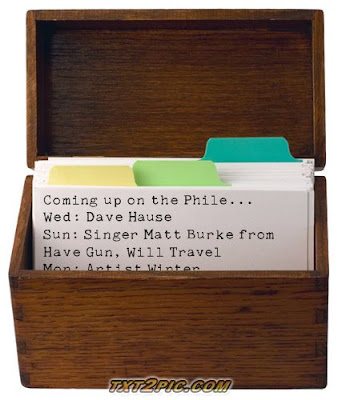 Coming up on the Phile...
Wed: Dave Hause
Sun: Singer Matt Burke from
Have Gun, Will Travel
Mon: Artist Winter
TXT2PIC.COM